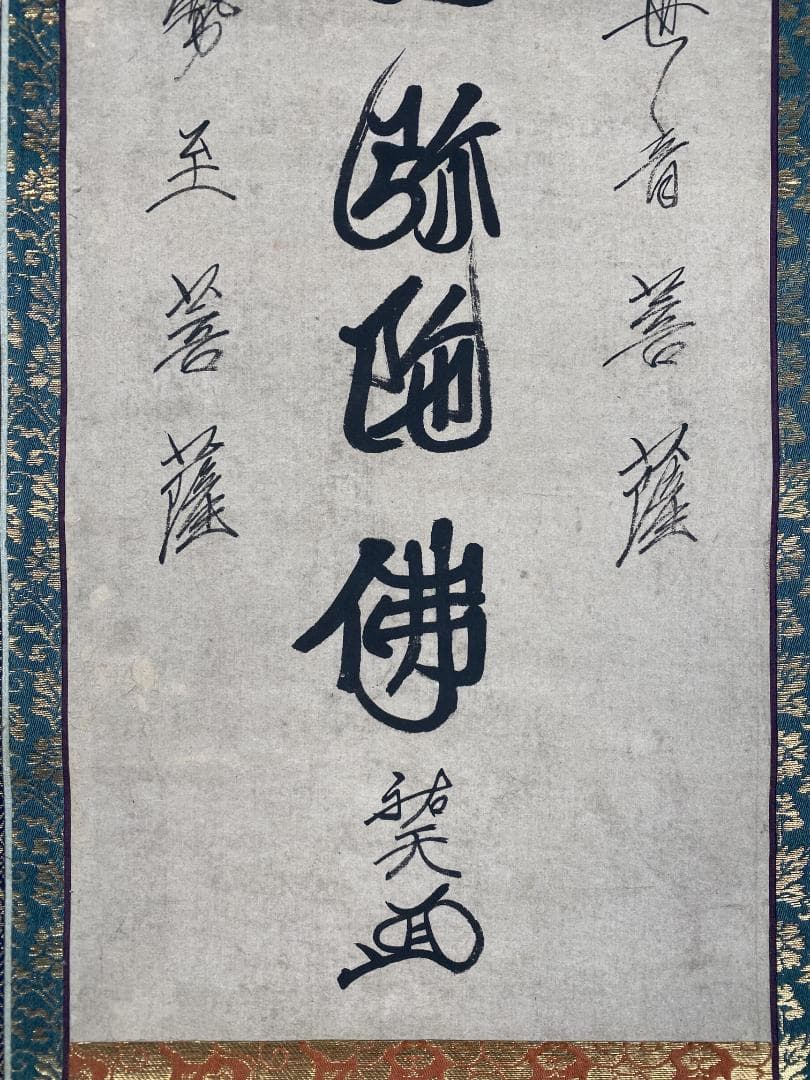 世音菩薩
弥陀佛
祐天
勢至菩薩